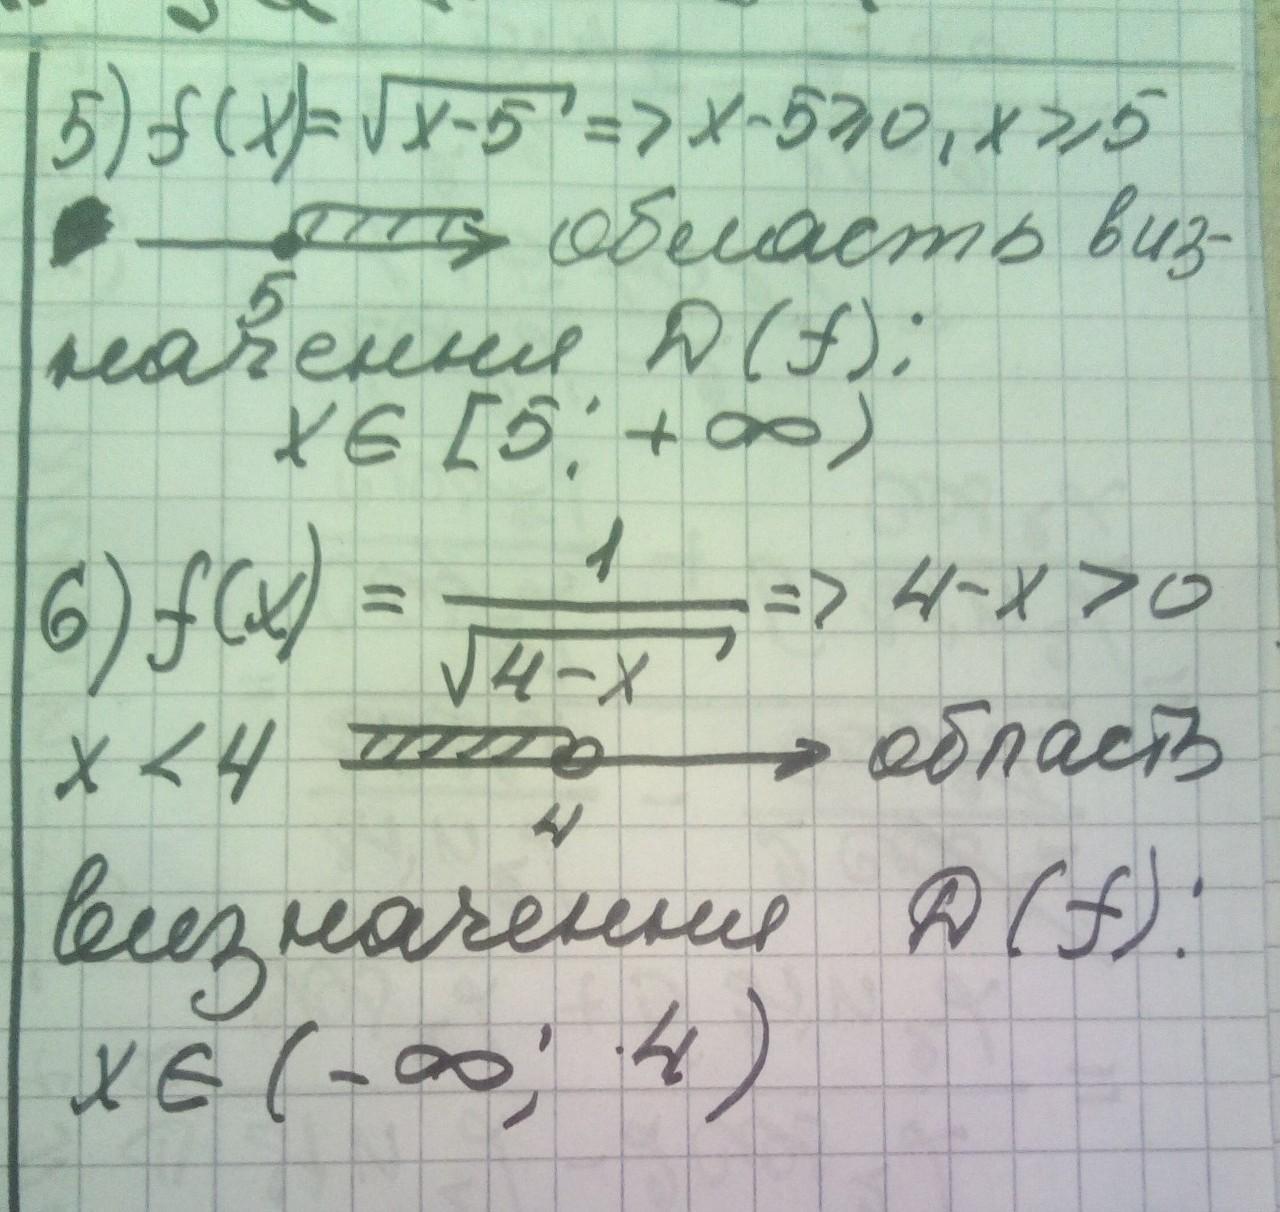 5) f(x) = √(x-5) => x-5≥0, x≥5
5
область виз-
начення D(f):
x∈[5; +∞)
6) f(x) = 1/√(4-x) => 4-x>0
x<4
4
область
визначення D(f):
x∈(-∞; 4)